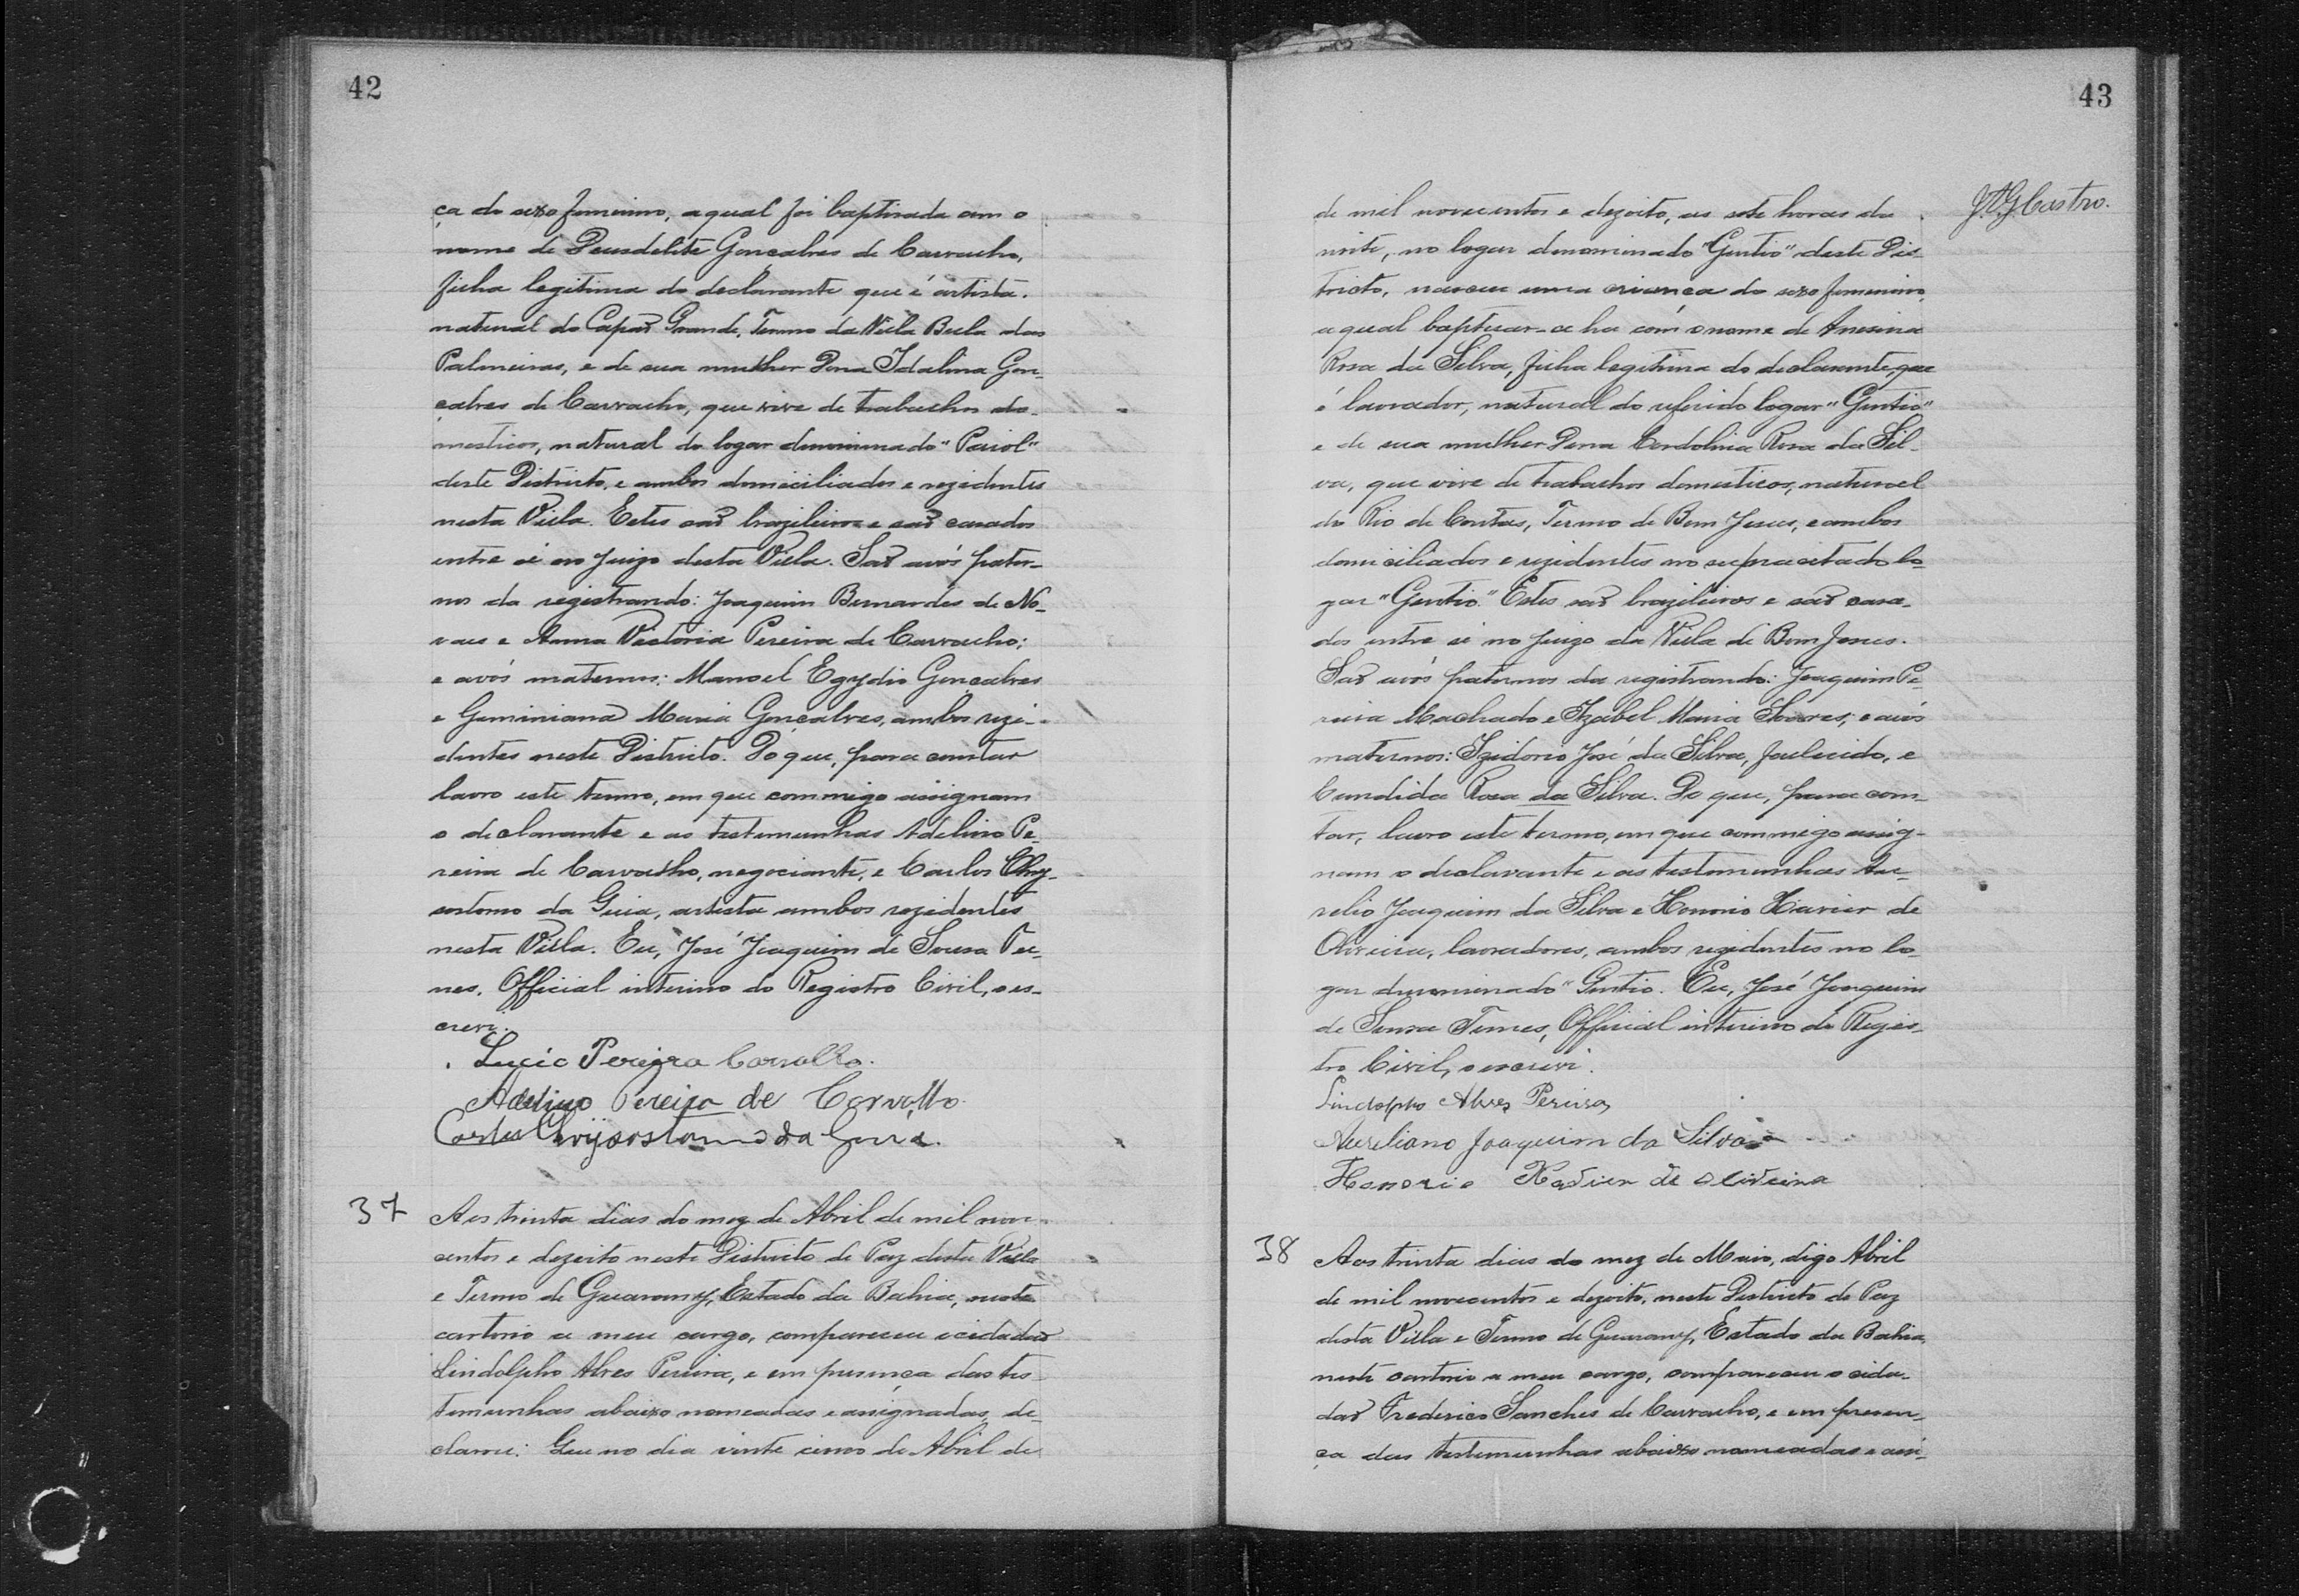 42
ça do sexo femenino, a qual foi baptisada com o
nome de Deusdelite Gonçalves de Carvalho,
filha legitima do declarante que é artista.
natural do Capão Grande, Termo da Villa Bella das
Palmeiras, e de sua mulher Dona Idalina Gon-
çalves de Carvalho, que vive de trabalhos do-
mesticos, natural do logar denominado "Paiol"
deste Districto, e ambos domiciliados e rezidentes
nesta Villa. Estes são brazileiros e são casados
entre si no Juizo desta Villa. São avós pater-
nos da registrando: Joaquim Bernardes de No-
vaes e Anna Victoria Pereira de Carvalho;
e avós maternos: Manoel Egydio Gonçalves
e Geminiana Maria Gonçalves, ambos rezi-
dentes neste Districto. Do que, para constar
lavro este termo, em que commigo assignam
o declarante e as testemunhas Adelino Pe-
reira de Carvalho, negociante, e Carlos Chry-
sostomo da Guia, artista ambos rezidentes
nesta Villa. Eu, José Joaquim de Sousa Tu-
nes, Official interino do Registro Civil, o es-
crevi.
Lucio Pereira Carvalho.
Adelino Pereira de Carvalho
Carlos Chrijsostomo da Guia.
37 Aos trinta dias do mez de Abril de mil nove-
centos e dezoito neste Districto de Paz desta Villa
e Termo de Guarany, Estado da Bahia, neste
cartorio a meu cargo, compareceu o cidadão
Lindolpho Alves Pereira, e em presença das tes-
temunhas abaixo nomeadas e assignadas, de-
clarou: Que no dia vinte cinco de Abril de
43
J.A.G. Castro.
de mil novecentos e dezoito, as sete horas da
noite, no logar denominado "Gentio" deste Dis-
tricto, nasceu uma criança do sexo femenino,
a qual baptisar-se ha com o nome de Anesina
Rosa da Silva, filha legitima do declarante, que
é lavrador, natural do referido logar "Gentio"
e de sua mulher Dona Cordolina Rosa da Sil-
va, que vive de trabalhos domesticos, natural
do Rio de Contas, Termo de Bom Jesus, e ambos
domiciliados e rezidentes no supracitado lo-
gar "Gentio." Estes são brazileiros e são casa-
dos entre si no Juizo da Villa de Bom Jesus.
São avós paternos da registrando: Joaquim Pe-
reira Machado e Izabel Maria Soares; e avós
maternos: Izidorio José da Silva, fallecido, e
Candida Rosa da Silva. Do que, para cons-
tar, lavro este termo, em que commigo assig-
nam o declarante e as testemunhas Au-
relio Joaquim da Silva e Honorio Xavier de
Oliveira, lavradores, ambos rezidentes no lo-
gar denominado "Gentio. Eu, José Joaquim
de Sousa Tunes, Official interino do Regis-
tro Civil, o escrevi.
Lindolpho Alves Pereira
Aureliano Joaquim da Silva
Honorio Xavier de Oliveira
38 Aos trinta dias do mez de Maio, digo Abril
de mil novecentos e dezoito, neste Districto de Paz
desta Villa e Termo de Guarany, Estado da Bahia,
neste cartorio a meu cargo, compareceu o cida-
dão Frederico Sanches de Carvalho, e em presen-
ça das testemunhas abaixo nomeadas e assi-